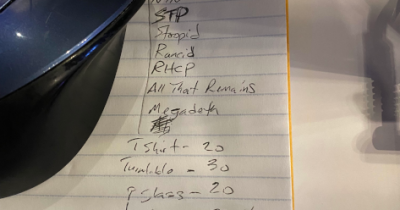 STP
Stoopid
Rancid
RHCP
All That Remains
Megadeth
T Shirt - 20
- 30
glass - 20